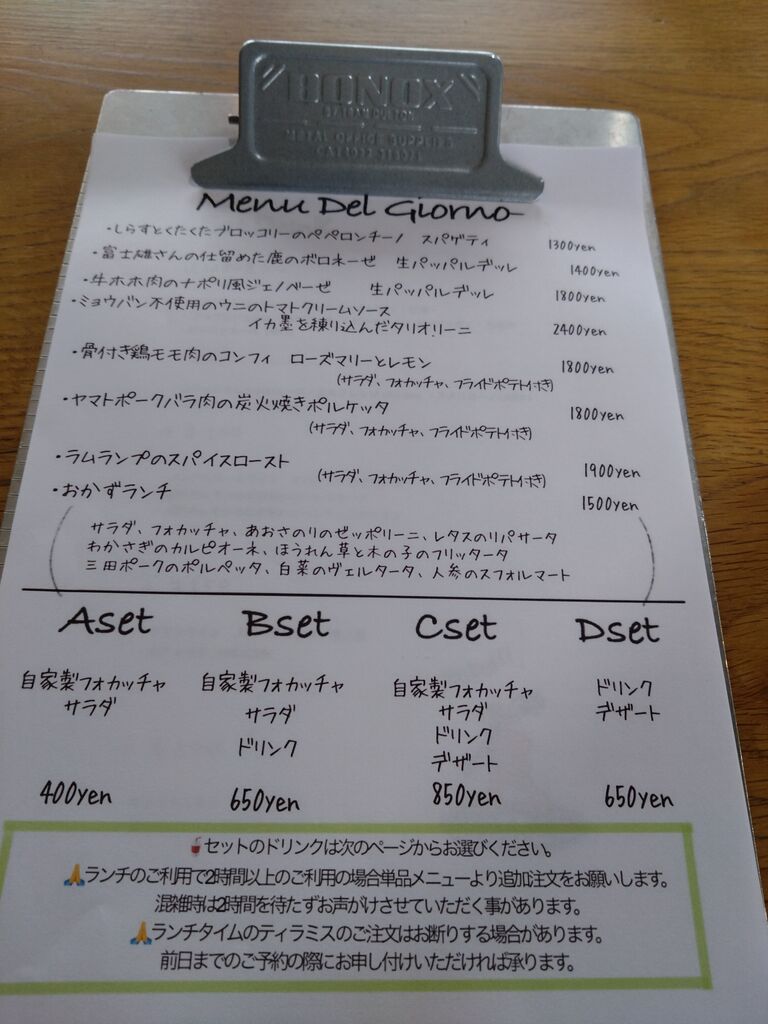 BONOX
METAL OFFICE SUPPLIES
Menu Del Giorno
・しらすとくたくたブロッコリーのペペロンチーノ スパゲティ 1300yen
・富士雄さんの仕留めた鹿のボロネーゼ 生パッパルデッレ 1400yen
・牛ホホ肉のナポリ風ジェノベーゼ 生パッパルデッレ 1800yen
・ミョウバン不使用のウニのトマトクリームソース
イカ墨を練り込んだタリオリーニ 2400yen
・骨付き鶏モモ肉のコンフィ ローズマリーとレモン 1800yen
(サラダ、フォカッチャ、フライドポテト付き)
・ヤマトポークバラ肉の炭火焼きポルケッタ 1800yen
(サラダ、フォカッチャ、フライドポテト付き)
・ラムランプのスパイスロースト (サラダ、フォカッチャ、フライドポテト付き) 1900yen
・おかずランチ 1500yen
サラダ、フォカッチャ、あおさのりのゼッポリーニ、レタスのリパサータ
わかさぎのカルピオーネ、ほうれん草と木の子のフリッタータ
三田ポークのポルペッタ、白菜のヴェルタータ、人参のスフォルマート
Aset Bset Cset Dset
自家製フォカッチャ 自家製フォカッチャ 自家製フォカッチャ ドリンク
サラダ サラダ サラダ デザート
ドリンク ドリンク
デザート
400yen 650yen 850yen 650yen
🥤セットのドリンクは次のページからお選びください。
🙏ランチのご利用で2時間以上のご利用の場合単品メニューより追加注文をお願いします。
混雑時は2時間を待たずお声がけさせていただく事があります。
🙏ランチタイムのティラミスのご注文はお断りする場合があります。
前日までのご予約の際にお申し付けいただければ承ります。